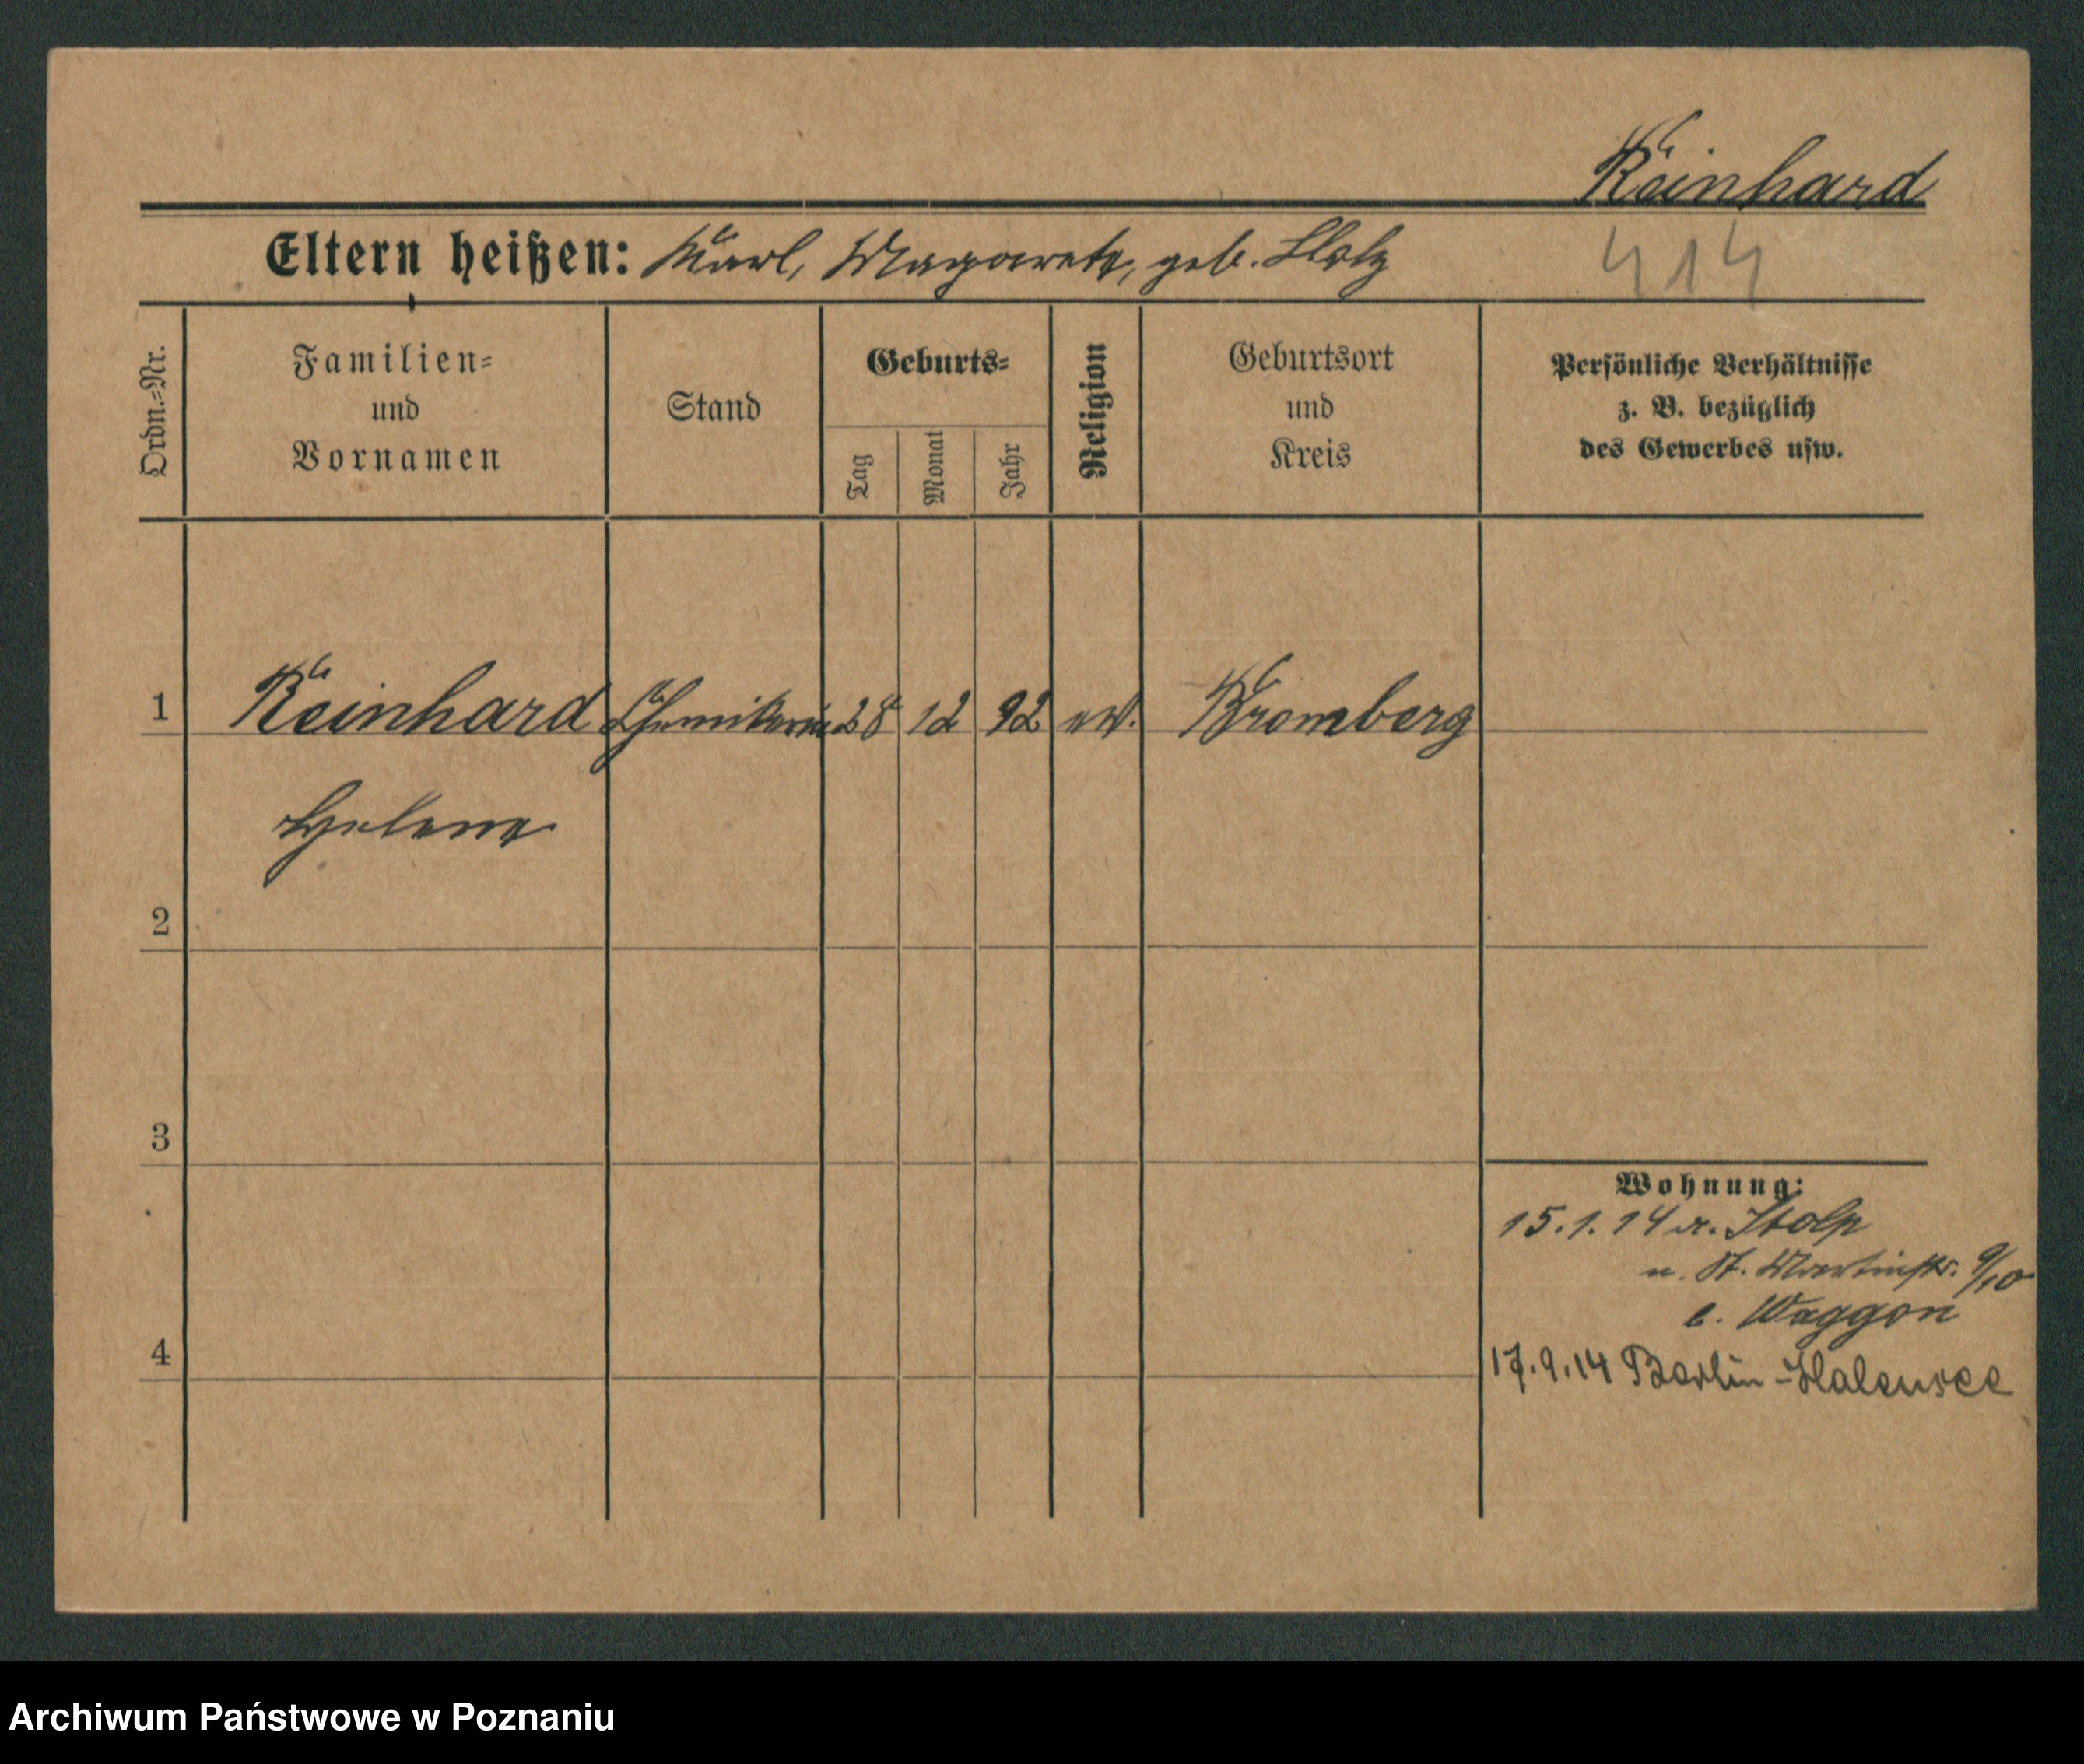 Reinhard
Eltern heißen: Karl, Magarete, geb. Stolz
414
Ordn.-Nr.
Familien-
und
Vornamen
Stand
Geburts-
Tag
Monat
Jahr
Religion
Geburtsort
und
Kreis
Persönliche Verhältnisse
z. B. bezüglich
des Gewerbes usw.
1 Reinhard Chemikerin 28 12 92 ev. Bromberg
Helene
2
3
4
Wohnung:
15.1.14 v. Stolp
n. St. Martinstr. 9/10
b. Waggon
17.9.14 Berlin-Halensee
Archiwum Państwowe w Poznaniu